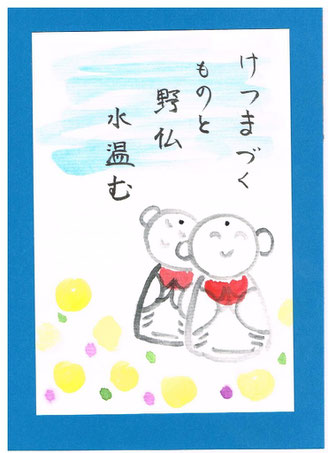 けつまづく
ものと
野仏
水温む